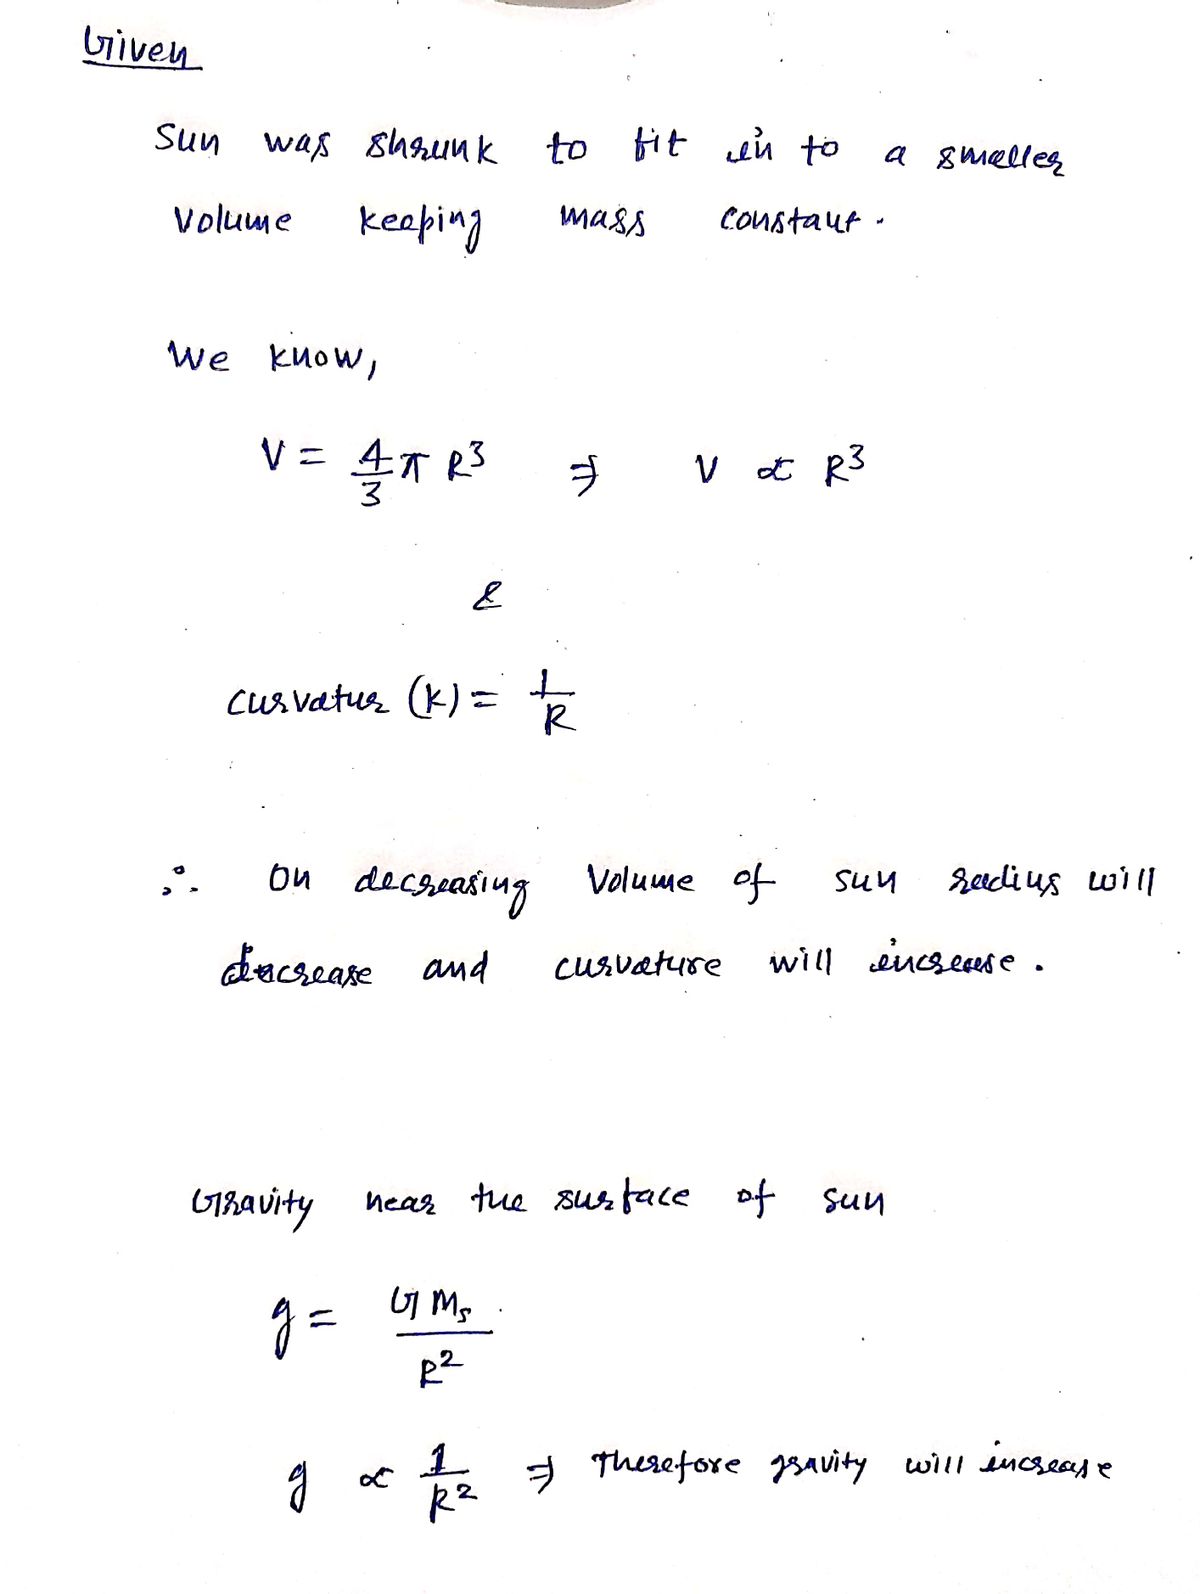 Given
Sun was shrunk to fit in to a smaller
Volume keeping mass constant.
We know,
V = 4/3 π R³ ⇒ V ∝ R³
&
curvatur (k) = 1/R
∴ On decreasing Volume of sun radius will
decrease and curvature will increase.
Gravity near the surface of sun
g = G Ms / R²
g ∝ 1/R² ⇒ Therefore gravity will increase